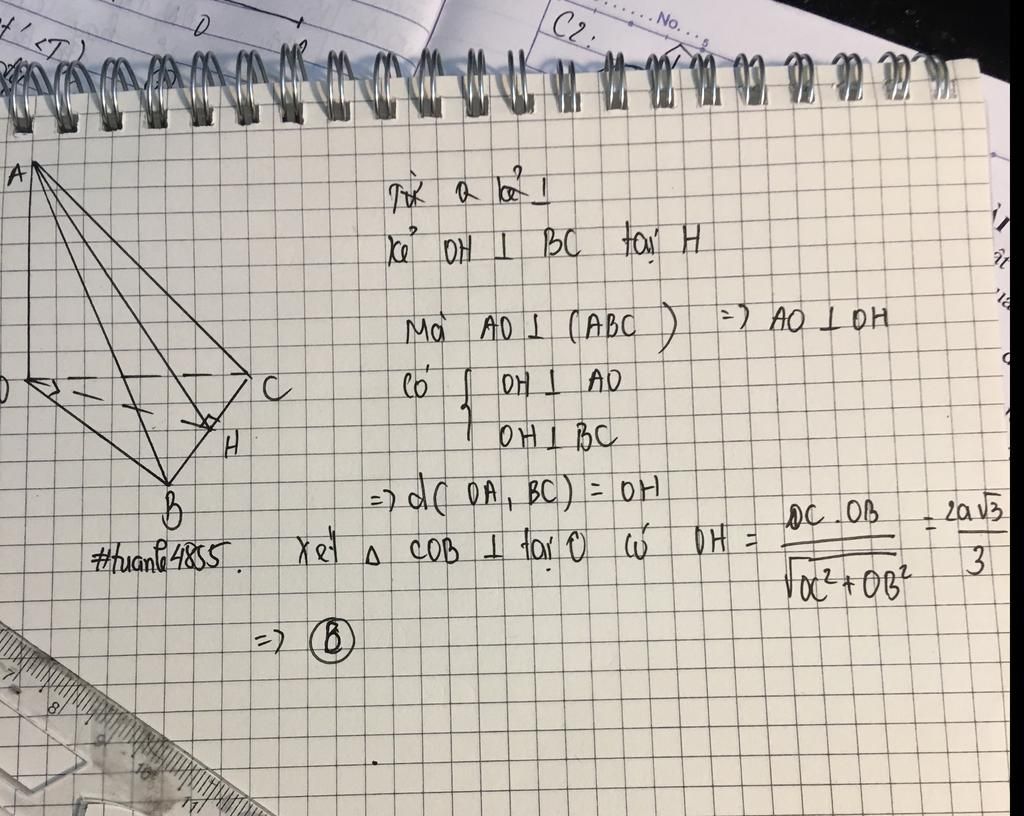 No.
C2.
O
A
Từ O kẻ ⊥
Kẻ OH ⊥ BC tại H
Mà AO ⊥ (ABC) => AO ⊥ OH
Có { OH ⊥ AO
OH ⊥ BC
C
H
B
=> d(OA, BC) = OH
#tuanle4855.
Xét Δ COB ⊥ tại O có OH = OC.OB / √(OC² + OB²) = 2a√3 / 3
=> B
7
8
9
10
11